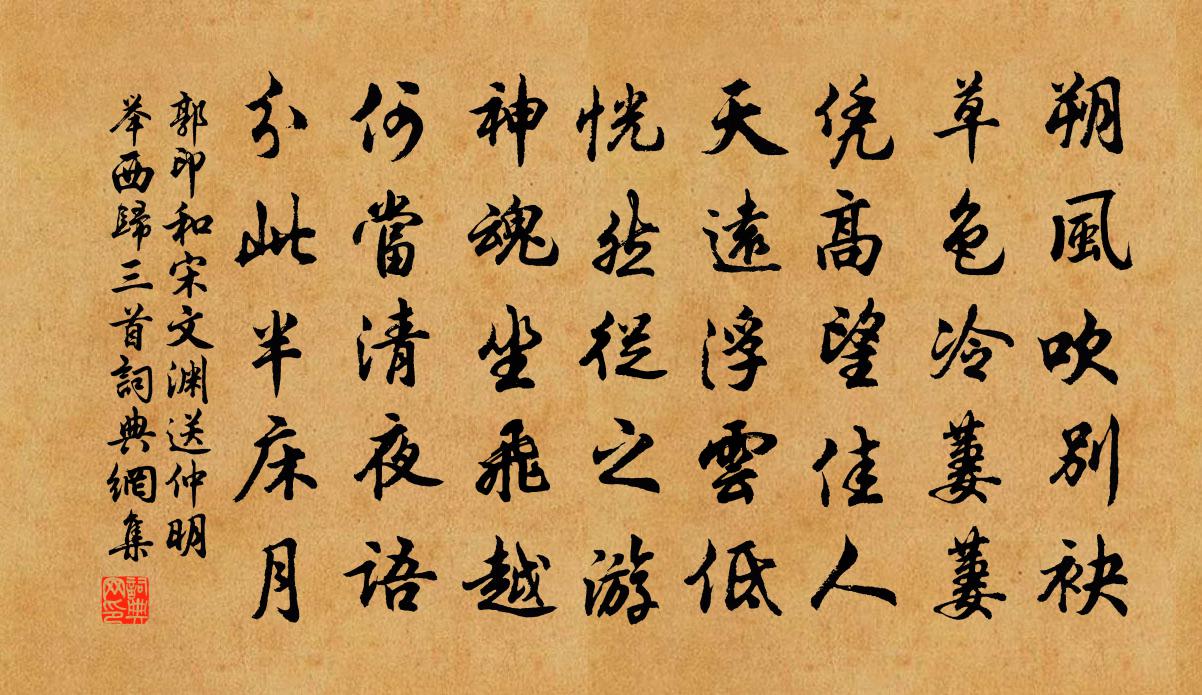 朔風吹別袂
草色冷萋萋
凭高望佳人
天遠浮雲低
恍然從之游
神魂坐飛越
何當清夜語
分此半床月
郭印和宋文渊送仲明
举西歸三首詞典網集
詞典网印